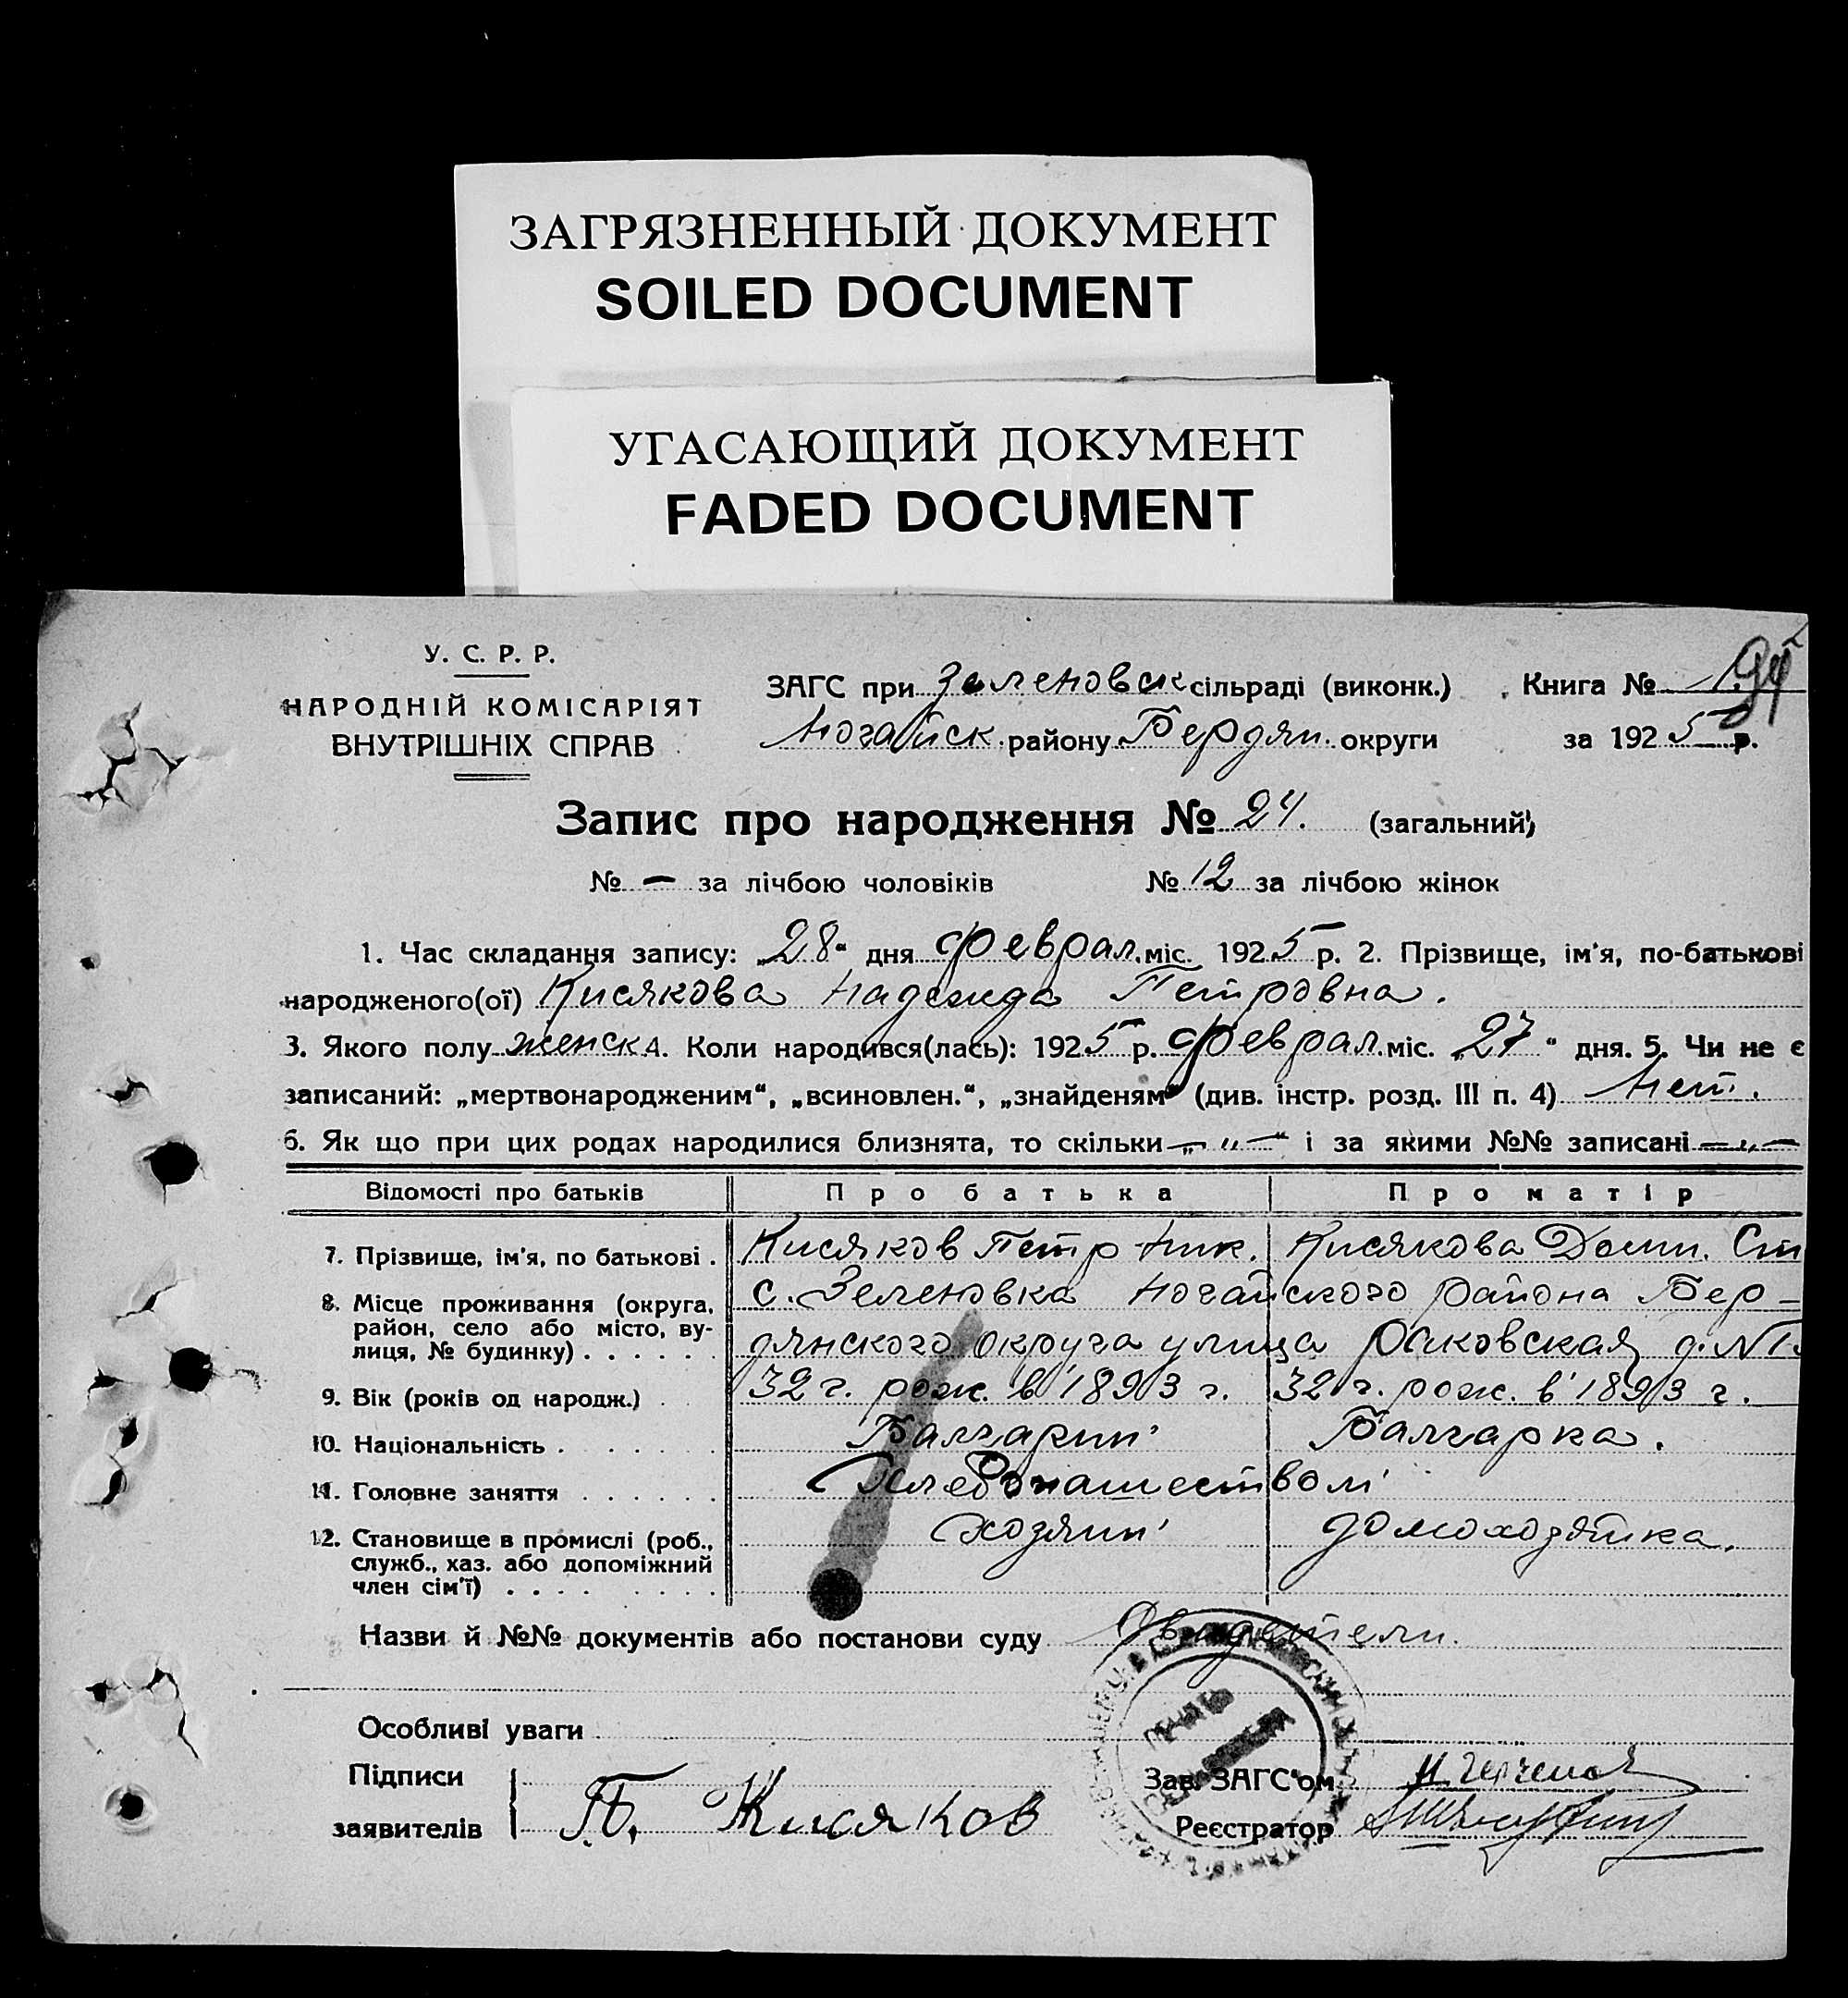 ЗАГРЯЗНЕННЫЙ ДОКУМЕНТ
SOILED DOCUMENT
УГАСАЮЩИЙ ДОКУМЕНТ
FADED DOCUMENT
У. С. Р. Р.
НАРОДНІЙ КОМІСАРІЯТ
ВНУТРІШНІХ СПРАВ
ЗАГС при Зеленовск сільраді (виконк.) Книга № 1
Ногайск. району Бердян. округи за 1925 р.
Запис про народження № 24. (загальний)
№ — за лічбою чоловіків № 12 за лічбою жінок
1. Час складання запису: „28“ дня феврал. міс. 1925 р. 2. Прізвище, ім'я, по-батькові
народженого(ої) Кисякова Надежда Петровна.
3. Якого полу женска. Коли народився(лась): 1925 р. феврал. міс. „27“ дня. 5. Чи не є
записаний: „мертвонародженим“, „всиновлен.“, „знайденям“ (див. інстр. розд. III п. 4) Нет.
6. Як що при цих родах народилися близнята, то скільки — „ — і за якими №№ записані — „ —
Відомості про батьків Про батька Про матір
7. Прізвище, ім'я, по батькові . Кисяков Петр Ник. Кисякова Домн. Ст
8. Місце проживання (округа, с. Зеленовка Ногайского района Бер-
район, село або місто, ву-
лиця, № будинку) . . . . . . дянского округа улица Раковская д. №
9. Вік (років од народж.) . . 32 г. рож. в 1893 г. 32 г. рож. в 1893 г.
10. Національність . . . . . . Балгарин Балгарка.
11. Головне заняття . . . . . . Хлебопашеством
12. Становище в промислі (роб., хозяин домохозяйка.
служб., хаз. або допоміжний
член сім'ї) . . . . . . . .
Назви й №№ документів або постанови суду Свидетели.
Особливі уваги
Підписи
заявителів П. Кисяков
Зав. ЗАГС'ом
Реєстратор